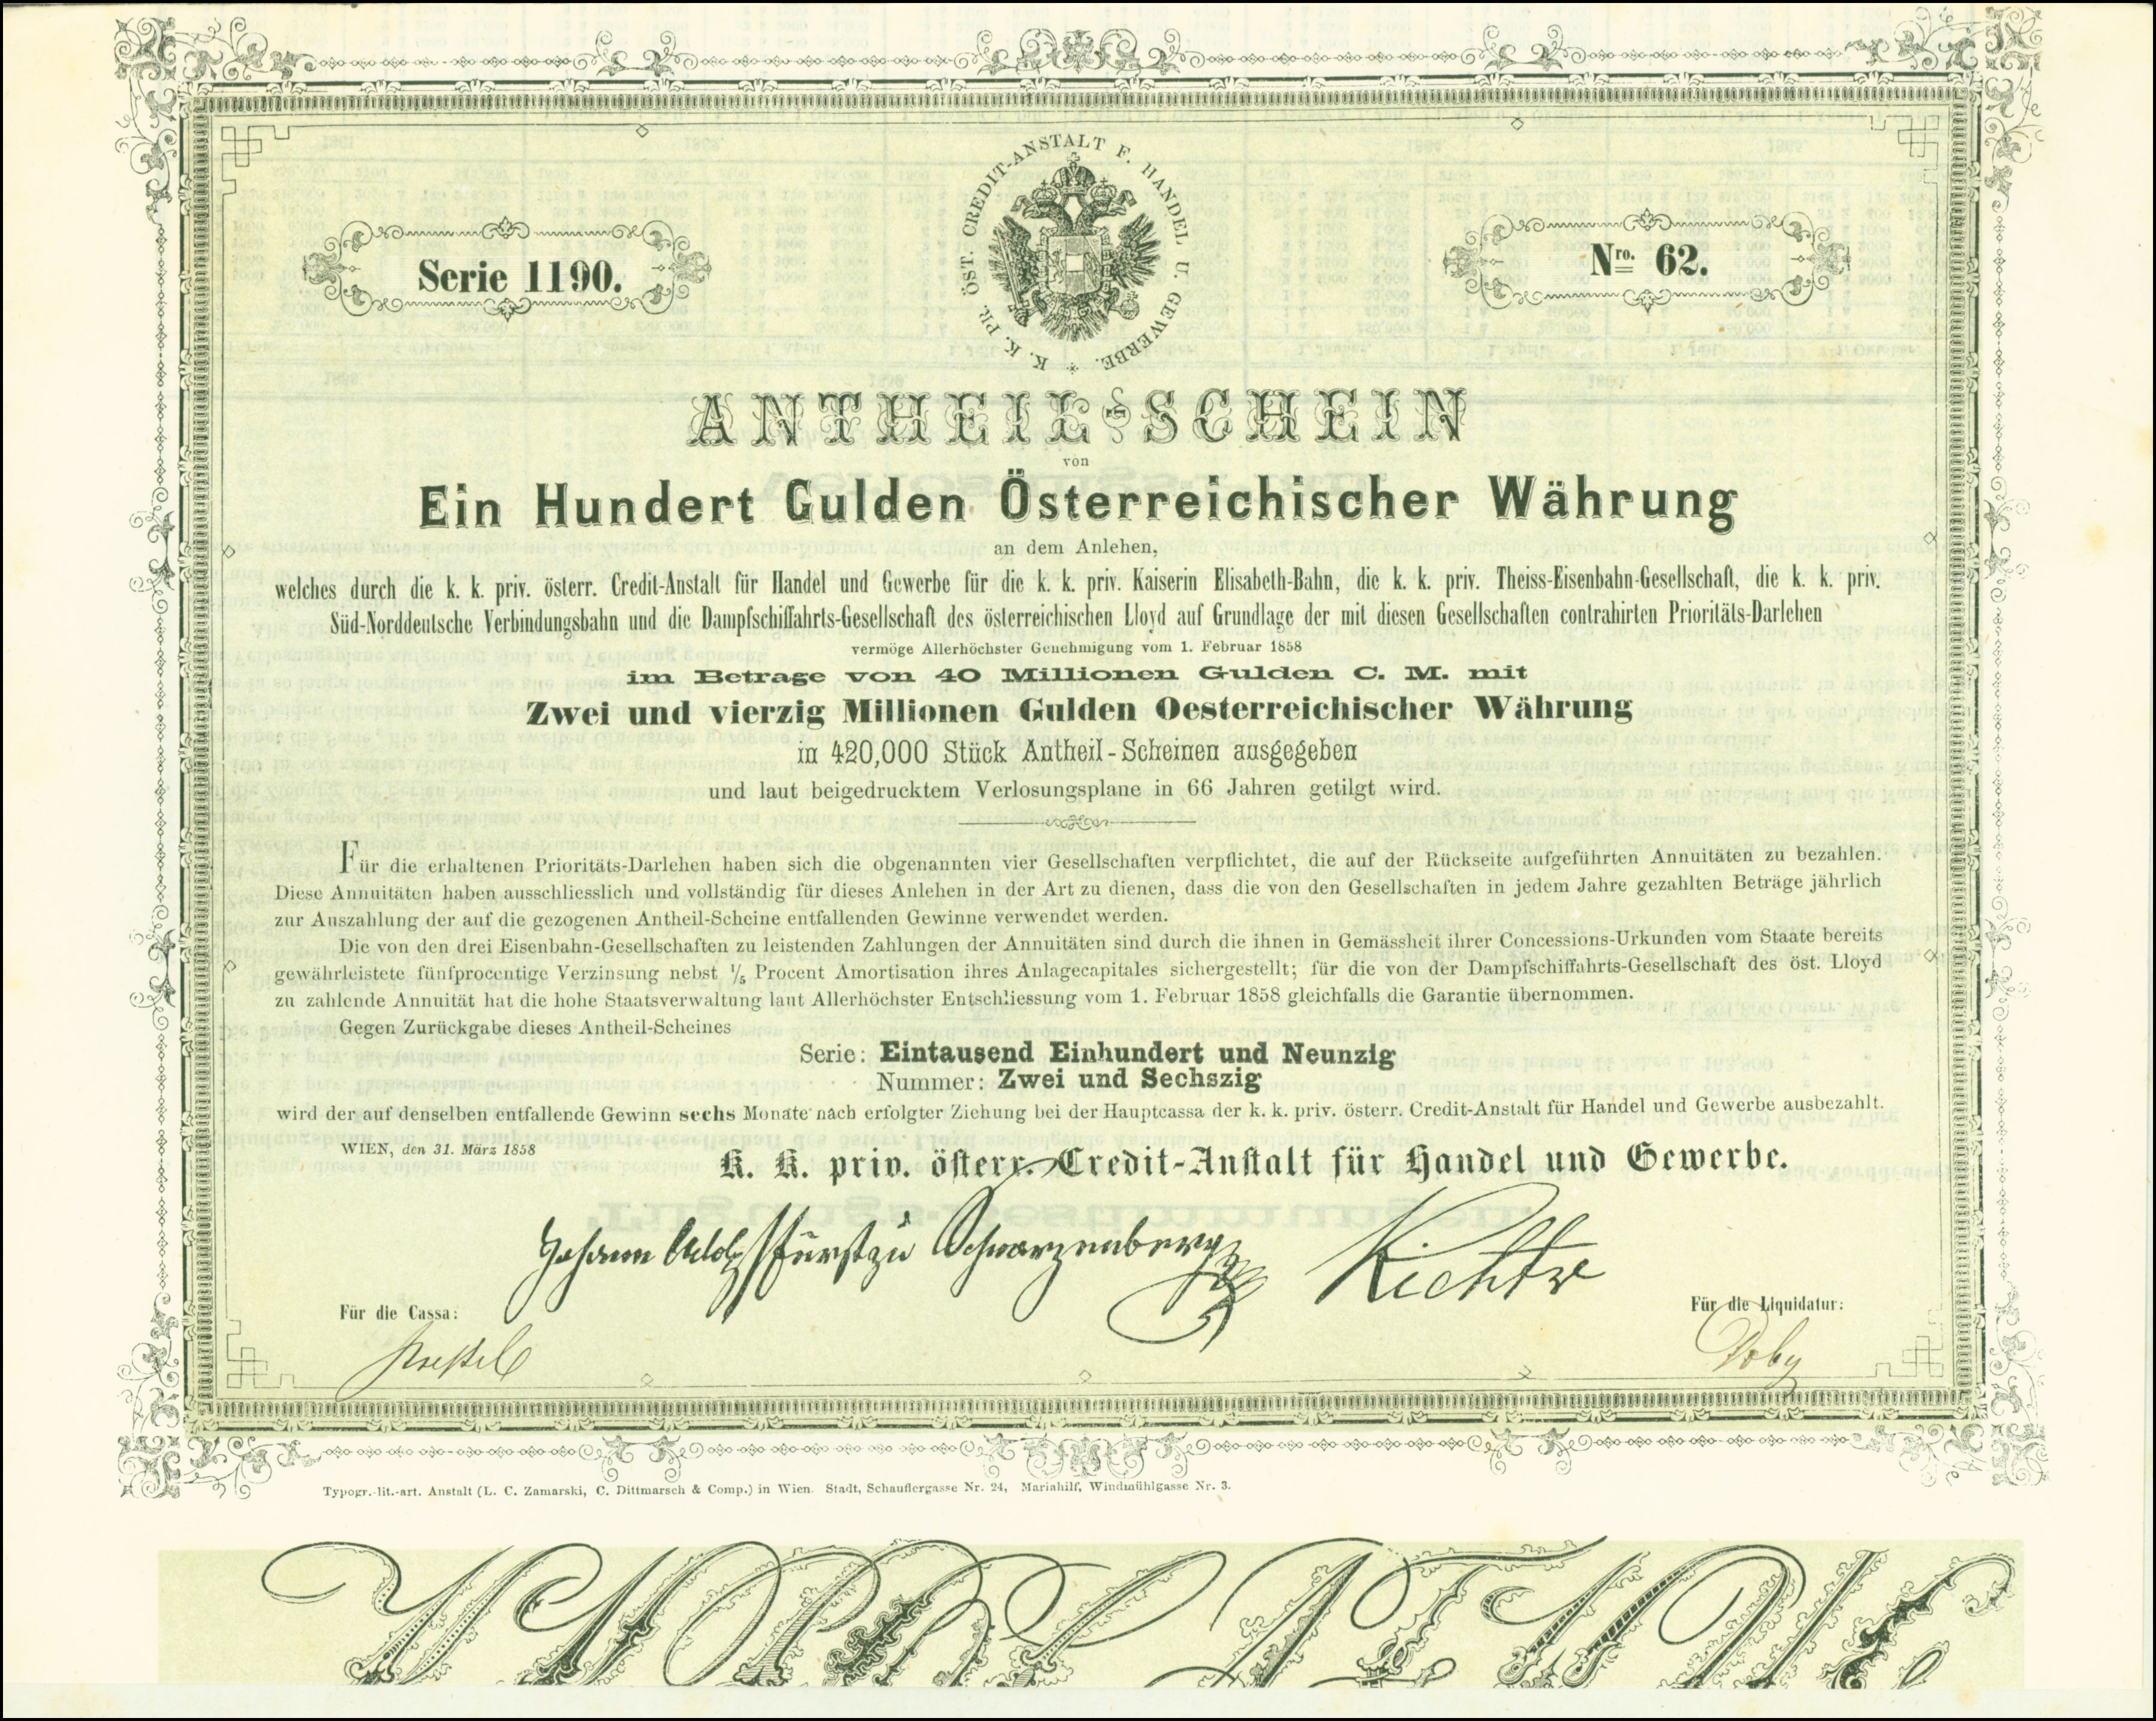 K. K. PR. ÖST. CREDIT-ANSTALT F. HANDEL U. GEWERBE.
Serie 1190.
Nro. 62.
ANTHEIL-SCHEIN
von
Ein Hundert Gulden Österreichischer Währung
an dem Anlehen,
welches durch die k. k. priv. österr. Credit-Anstalt für Handel und Gewerbe für die k. k. priv. Kaiserin Elisabeth-Bahn, die k. k. priv. Theiss-Eisenbahn-Gesellschaft, die k. k. priv.
Süd-Norddeutsche Verbindungsbahn und die Dampfschiffahrts-Gesellschaft des österreichischen Lloyd auf Grundlage der mit diesen Gesellschaften contrahirten Prioritäts-Darlehen
vermöge Allerhöchster Genehmigung vom 1. Februar 1858
im Betrage von 40 Millionen Gulden C. M. mit
Zwei und vierzig Millionen Gulden Oesterreichischer Währung
in 420,000 Stück Antheil-Scheinen ausgegeben
und laut beigedrucktem Verlosungsplane in 66 Jahren getilgt wird.
Für die erhaltenen Prioritäts-Darlehen haben sich die obgenannten vier Gesellschaften verpflichtet, die auf der Rückseite aufgeführten Annuitäten zu bezahlen.
Diese Annuitäten haben ausschliesslich und vollständig für dieses Anlehen in der Art zu dienen, dass die von den Gesellschaften in jedem Jahre gezahlten Beträge jährlich
zur Auszahlung der auf die gezogenen Antheil-Scheine entfallenden Gewinne verwendet werden.
Die von den drei Eisenbahn-Gesellschaften zu leistenden Zahlungen der Annuitäten sind durch die ihnen in Gemässheit ihrer Concessions-Urkunden vom Staate bereits
gewährleistete fünfprocentige Verzinsung nebst 1/5 Procent Amortisation ihres Anlagecapitales sichergestellt; für die von der Dampfschiffahrts-Gesellschaft des öst. Lloyd
zu zahlende Annuität hat die hohe Staatsverwaltung laut Allerhöchster Entschliessung vom 1. Februar 1858 gleichfalls die Garantie übernommen.
Gegen Zurückgabe dieses Antheil-Scheines
Serie: Eintausend Einhundert und Neunzig
Nummer: Zwei und Sechszig
wird der auf denselben entfallende Gewinn sechs Monate nach erfolgter Ziehung bei der Hauptcassa der k. k. priv. österr. Credit-Anstalt für Handel und Gewerbe ausbezahlt.
WIEN, den 31. März 1858
K. K. priv. österr. Credit-Anstalt für Handel und Gewerbe.
Johann Adolf Fürst zu Schwarzenberg
Richter
Für die Cassa:
Für die Liquidatur:
Doby
Typogr.-lit.-art. Anstalt (L. C. Zamarski, C. Dittmarsch & Comp.) in Wien. Stadt, Schauflergasse Nr. 24, Mariahilf, Windmühlgasse Nr. 3.